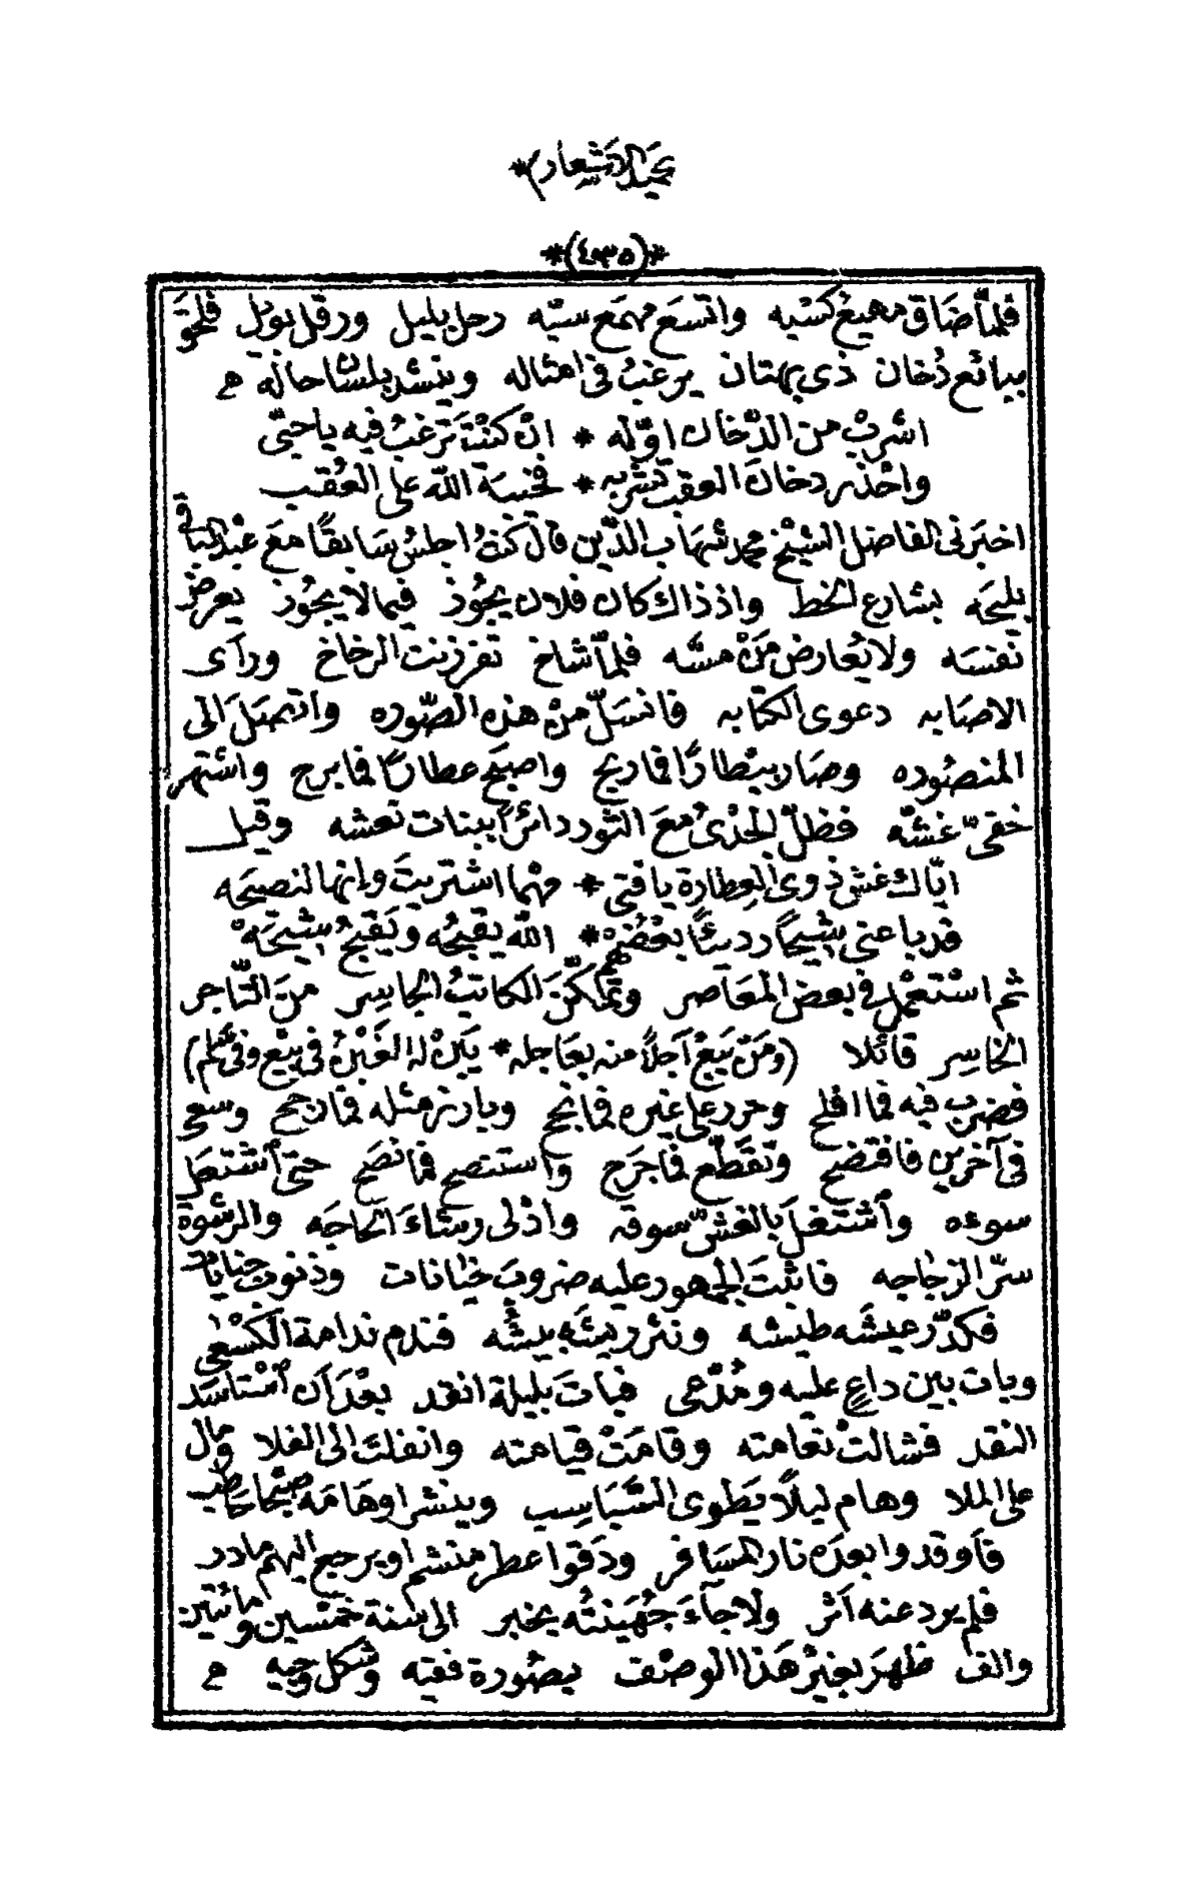 *(٤٣٥)*
فلمّا ضَاق مهيع كسبه واتسَع مهمَع سبّه رحل بليل ورقل بويل فلحَق
ببائع دُخان ذي بهتان يرغبُ في امثاله وينشد بلسَان حاله
اشربْ من الدّخان اوّله * انْ كنْتَ ترغبُ فيه يا حبّي
واحْذر دخانَ العقبِ تشربه * فخيبَة الله على العُقب
اخبَرني الفاضل الشيْخ محمد شهَاب الدّين قال كنتُ اجلسُ سَابقًا معَ عبْد الباقي
بلحَه بشارع الخط واذ ذاك كان فلان يجُوز فيما لا يجُوز يعرض
نفسَه ولا يُعارض مَنْ مسَّه فلمّا شاخ تفرزنت الرخاخ ورآى
الاصَابه دعوى الكتابه فانسَلّ منْ هذه الصّوره واتصَلَ الى
المنصُوره وصَار بيْطارًا فما ربح واصبَح عطارًا فما برح واشتهر
خفيّ غشّه فظلّ الجَدْىُ معَ الثور دائرًا ببنات نعشه وقيل
ايّاك غش ذوى العِطارة يا فتى * مهْما اشتريتَ وانها لنصيحَه
قد باعنى شيحًا رديئًا بعْضُهمْ * الله يقبحُه ويَقبحُ شيحَهْ
ثم اسْتعْمل في بعض المَعَاصر وتمَكّنَ الكاتبُ الجَاسِر منَ التّاجر
الخاسِر قائلا (ومَنْ يَبعْ آجلاً منه بعَاجله * يَبنْ له الغَبْنُ في بيْع وفى سَلم)
فضربَ فيه فما افلح وحرد على غيره فما نجح وبارز مثله فما رجح وسعى
فى آخرين فافتضح وتقطّع فما جرَح واستنصح فما نصَح حتى اشتعَل
سوءه واشتغلَ بالغشّ سوقه وادْلى رشاءَ الحاجَه والرشوة
سرّ الزجاجه فاثبتَ الجمهور عليه ضروبَ خيانات وذنوب جنايات
فكدّر عيشَه طيشه ونثر ريشَه بيشُه فندم ندامة الكسْعى
وبات بين داعٍ عليه ومُدّعى فباتَ بليلة انقد بعْدَ ان اسْتاسَد
النقد فشالتْ نعَامته وقامَتْ قيامته وانفلتَ الى الفلا ومال
على الملا وهام ليلاً يَطوى السَّبَاسِب وينشر اوهَامَه
فاَوقدوا بعدَه نار المسَافر ودَقوا عطر منشم او يرجع اليهم مادر
فلم يرد عنه اَثر ولا جآءَ جُهَينَتُه بخبر الى سَنة خمْسين ومائتين
والف ظهَر بغيْر هَذا الوصْف بصُورة فقيه وشكل وجيه